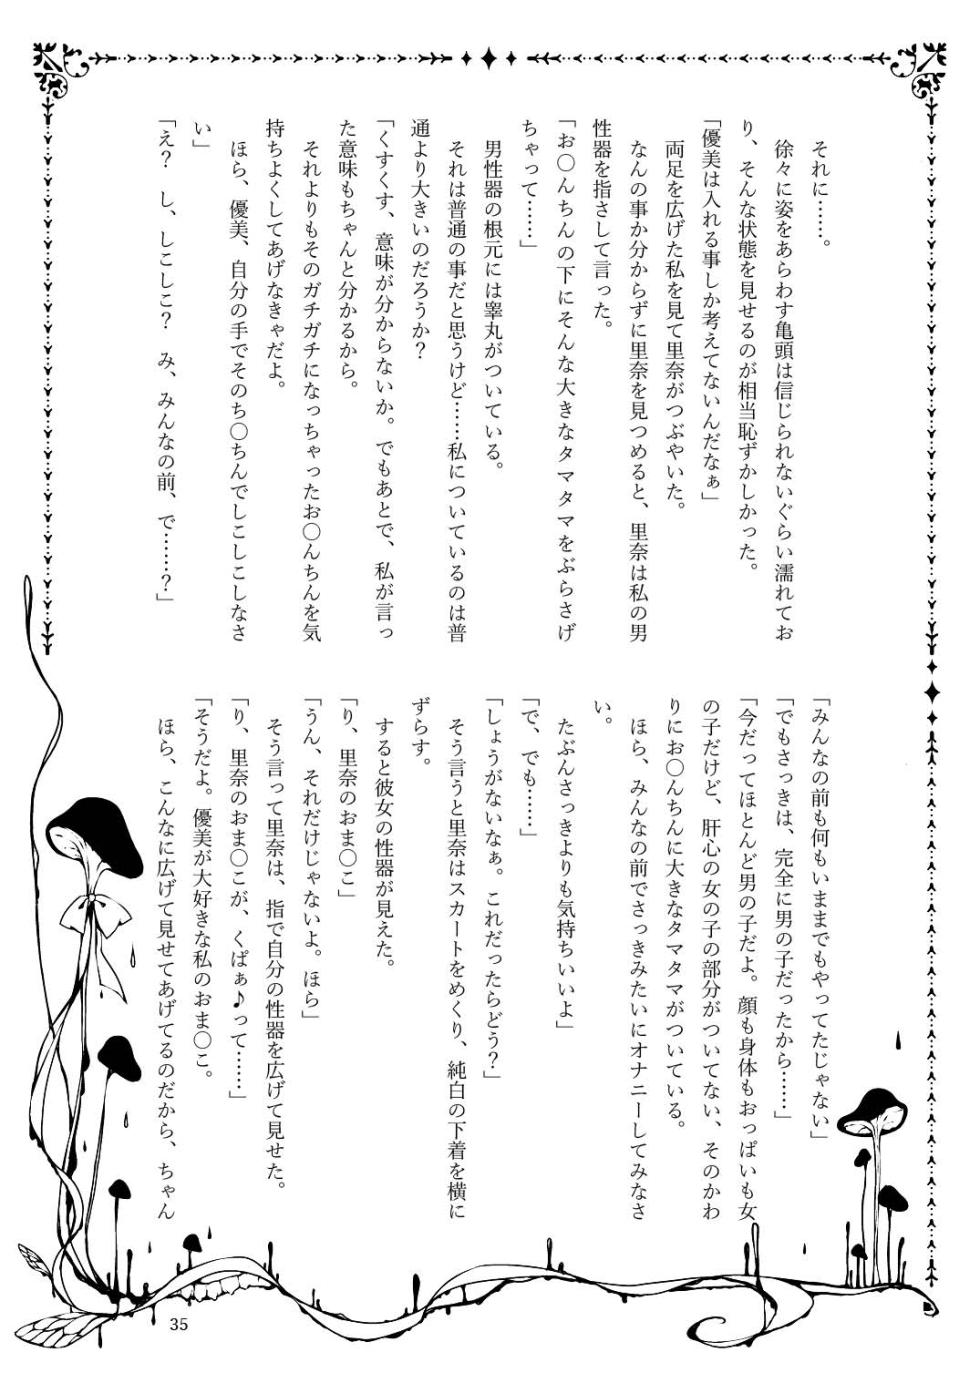 それに……。
徐々に姿をあらわす亀頭は信じられないぐらい濡れてお
り、そんな状態を見せるのが相当恥ずかしかった。
「優美は入れる事しか考えてないんだなぁ」
両足を広げた私を見て里奈がつぶやいた。
なんの事か分からずに里奈を見つめると、里奈は私の男
性器を指さして言った。
「お〇んちんの下にそんな大きなタマタマをぶらさげ
ちゃって……」
男性器の根元には睾丸がついている。
それは普通の事だと思うけど……私についているのは普
通より大きいのだろうか？
「くすくす、意味が分からないか。でもあとで、私が言っ
た意味もちゃんと分かるから。
それよりもそのガチガチになっちゃったお〇んちんを気
持ちよくしてあげなきゃだよ。
ほら、優美、自分の手でそのち〇ちんでしこしこしなさ
い」
「え？　し、しこしこ？　み、みんなの前、で……？」
「みんなの前も何もいままでもやってたじゃない」
「でもさっきは、完全に男の子だったから……」
「今だってほとんど男の子だよ。顔も身体もおっぱいも女
の子だけど、肝心の女の子の部分がついてない、そのかわ
りにお〇んちんに大きなタマタマがついている。
ほら、みんなの前でさっきみたいにオナニーしてみなさ
い。
たぶんさっきよりも気持ちいいよ」
「で、でも……」
「しょうがないなぁ。これだったらどう？」
そう言うと里奈はスカートをめくり、純白の下着を横に
ずらす。
すると彼女の性器が見えた。
「り、里奈のおま〇こ」
「うん、それだけじゃないよ。ほら」
そう言って里奈は、指で自分の性器を広げて見せた。
「り、里奈のおま〇こが、くぱぁ♪って……」
「そうだよ。優美が大好きな私のおま〇こ。
ほら、こんなに広げて見せてあげてるのだから、ちゃん
35